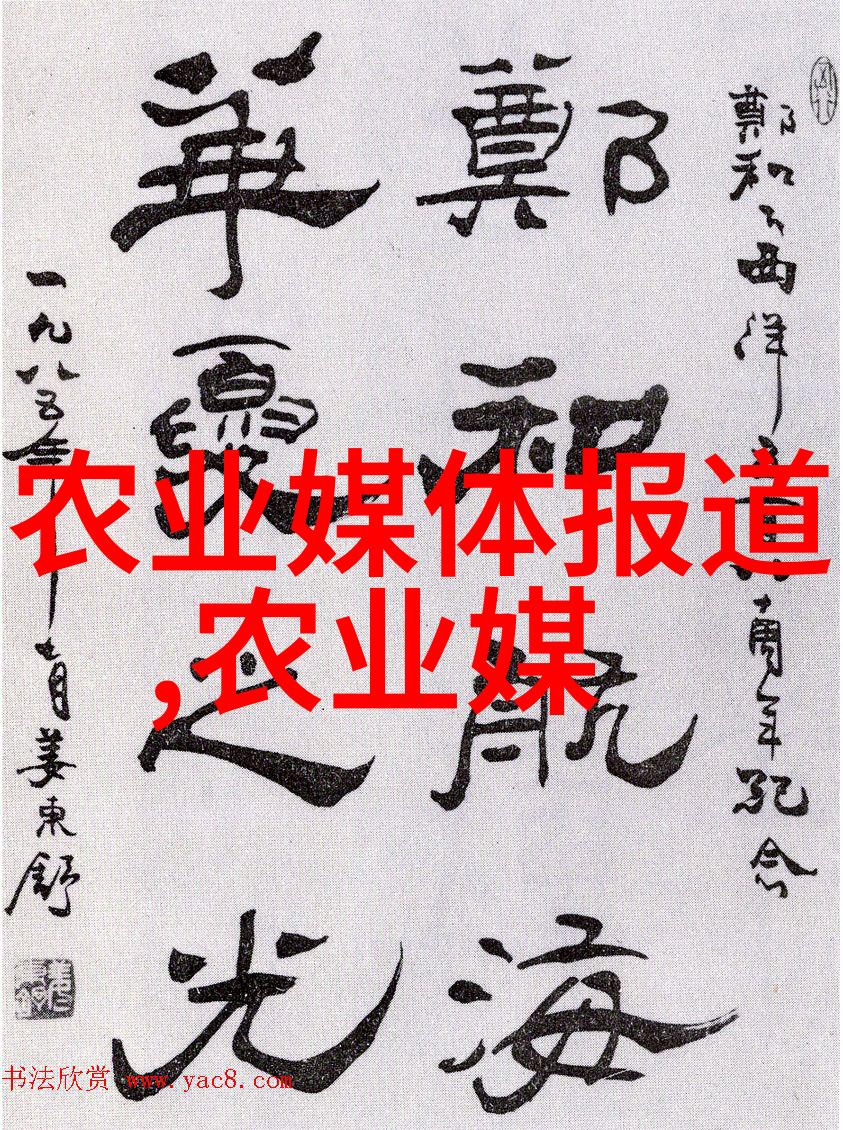 鄭和下西洋五百八十周年纪念
鄭和航海
華夏之光
一九八五年十一月姜東舒
农业媒体报道
,农业媒
书法欣赏 www.yac8.com